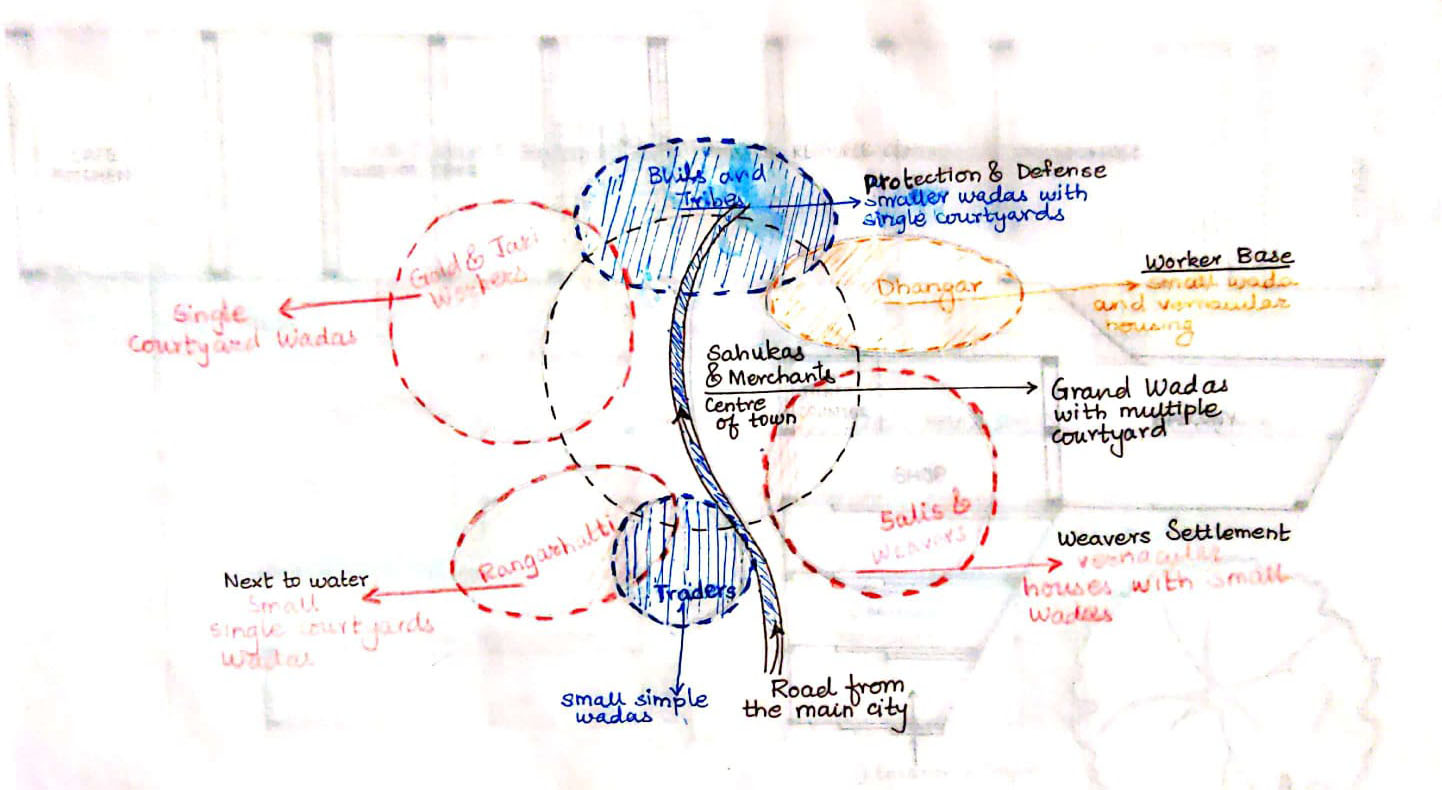 Bhils and
Tribes
Protection & Defense
smaller wadas with
single courtyards
Gold & Jari
Workers
Single
Courtyard Wadas
Dhangar
Worker Base
small wada
and vernacular
housing
Sahukas
& Merchants
Centre
of town
Grand Wadas
with multiple
courtyard
SHOP
Salis &
Weavers
Weavers Settlement
vernacular
houses with small
wadas
Rangarhatti
Next to water
Small
single courtyards
wadas
Traders
small simple
wadas
Road from
the main city